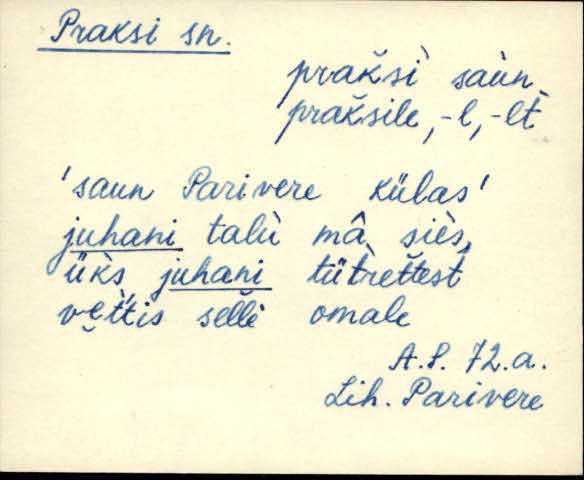 Praksi sn.
prakši̬ saùn
prakšile, -l, -lt
'saun Parivere külas'
juhani talù mâ sìès,
ük̀s juhani tüt̀rettest
vęt̀tis sellè omale
A.S. 72.a.
Lih. Parivere